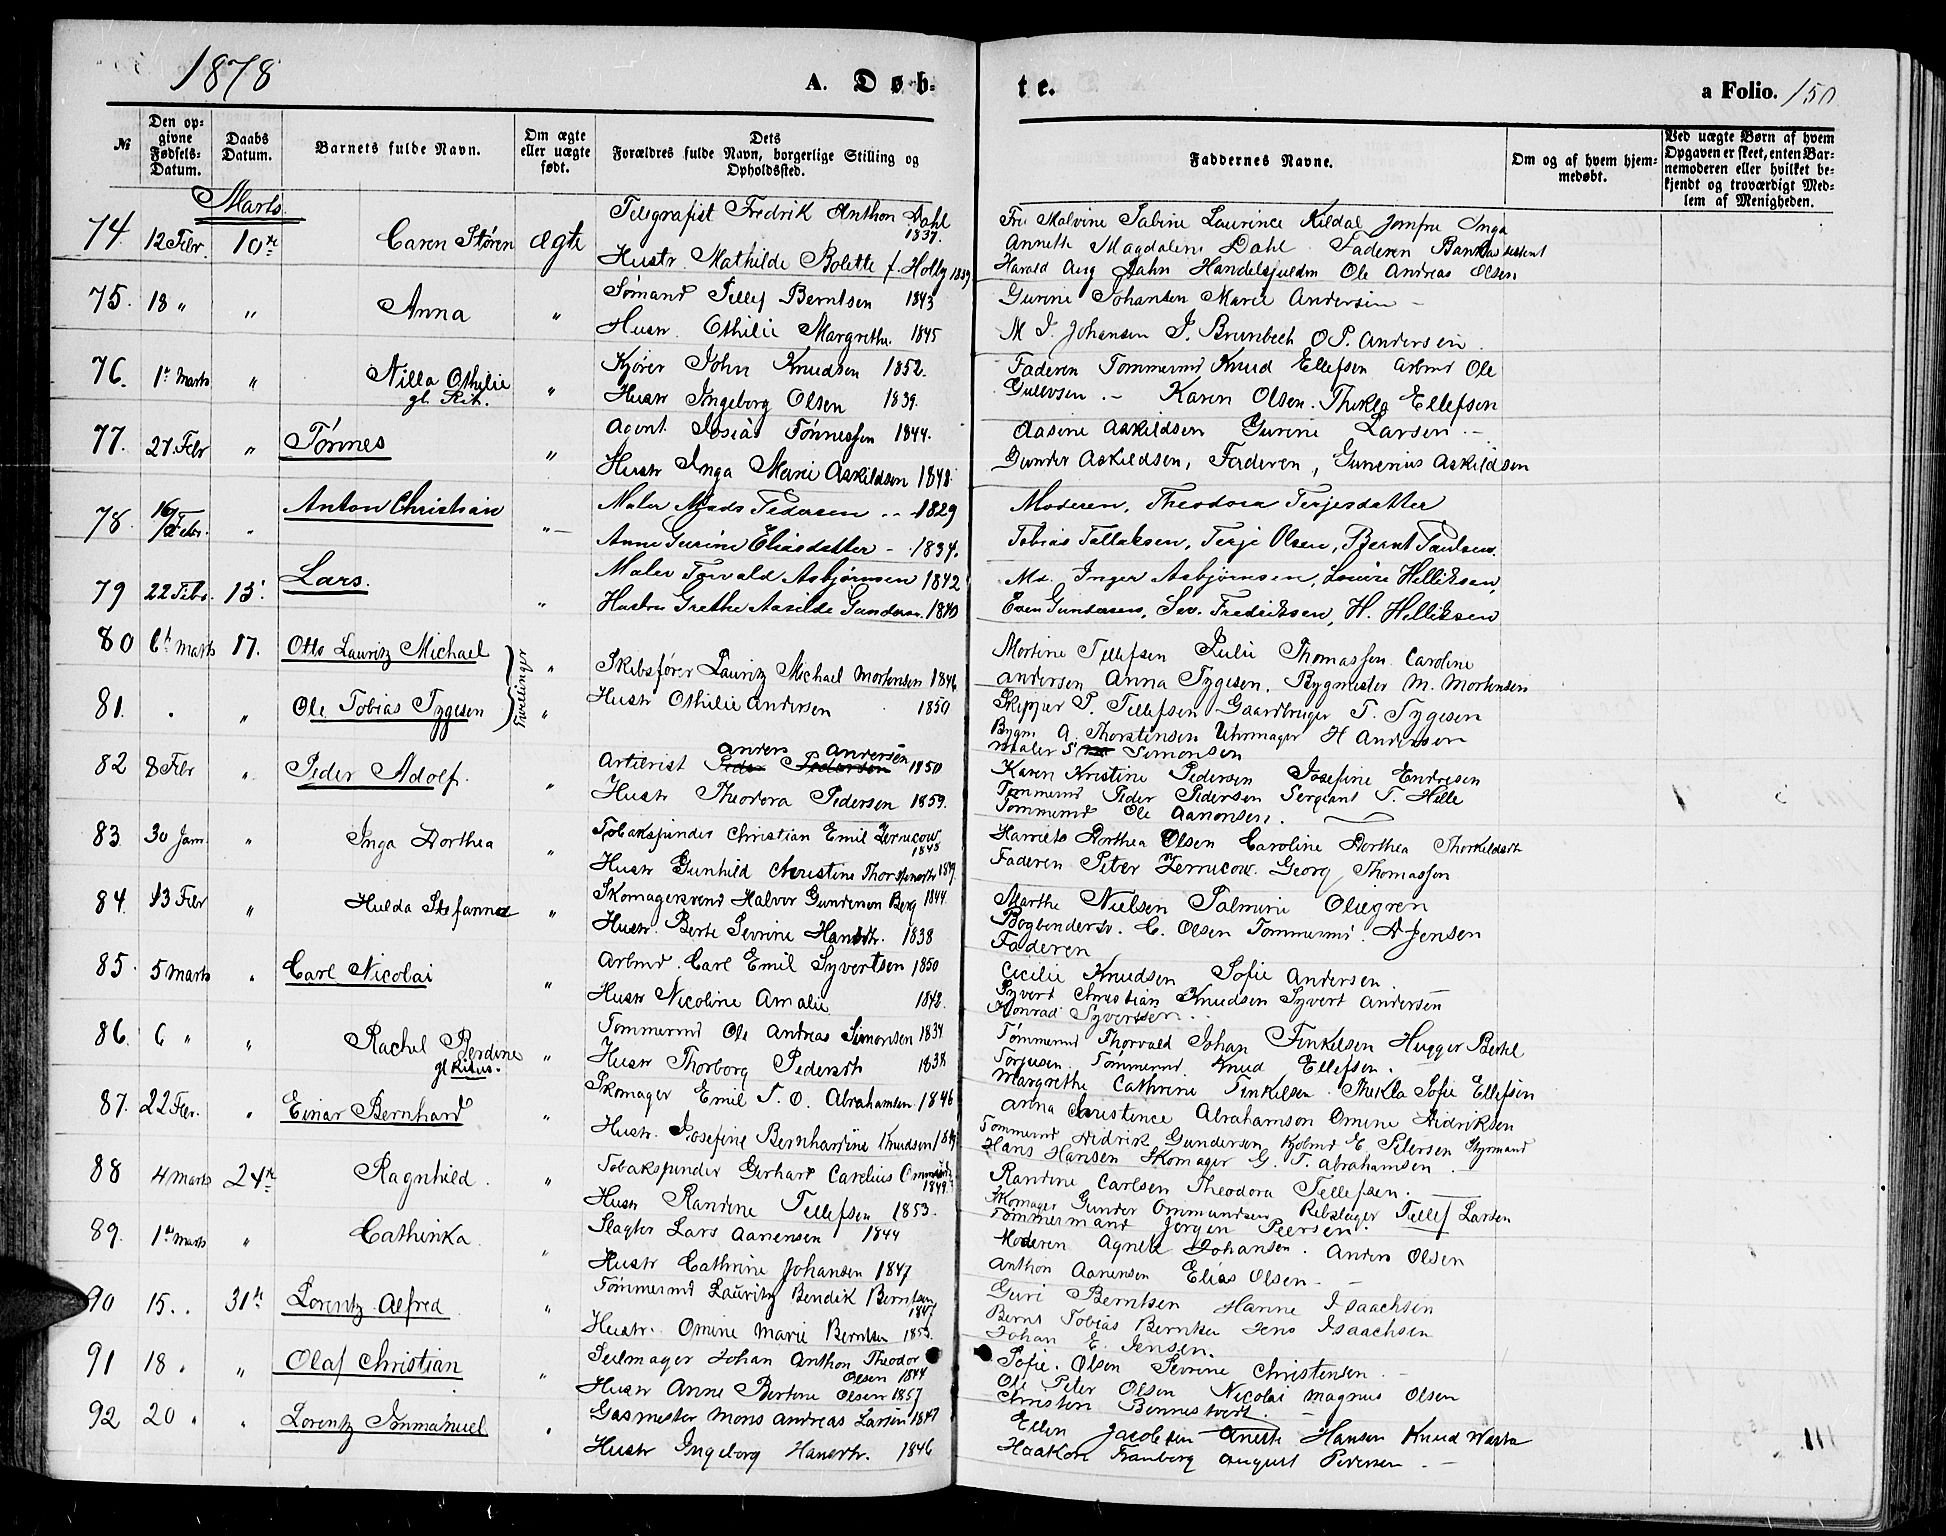 1878
A. Døb-
te.
a Folio. 150
№
Den opgivne Fødsels-Datum.
Daabs Datum.
Barnets fulde Navn.
Om ægte eller uægte født.
Dets Forældres fulde Navn, borgerlige Stilling og Opholdssted.
Faddernes Navne.
Om og af hvem hjemmedøbt.
Ved uægte Børn af hvem Opgaven er skeet, enten Barnemoderen eller hvilket bekjendt og troværdigt Medlem af Menigheden.
Marts.
74. 12 Febr 10de Caren Støren ægte Telegrafist Fredrik Anthon Dahl 1837.
Hustr. Mathilde Bolette f. Holby 1839
Fru Malvine Sabine Laurince Kildal Jomfru Inga
Anneth Magdalene Dahl Faderen Bankassistent
Harald Aug Jahn Handelsfuldm Ole Andreas Olsen
75. 18 " " Anna " Sømand Tellef Berntsen 1843
Hustr. Othilie Margrethe. 1845
Gurine Johansen Marie Andersen -
M J Johansen J. Brunbech O P. Andersen.
76. 1te Marts " Nilla Othilie gl. Rit. " Kjører John Knudsen 1852.
Hustr Ingeborg Olsen 1839.
Faderen Tømmermd Knud Ellefsen Arbmd Ole
Gulovsen. - Karen Olsen. Thekla Ellefsen
77. 27 Febr " Tønnes " Agent. Josias Tønnessen 1844.
Hustr Inga Marie Askildsen 1848.
Aasine Askildsen Gurine Larsen. -
Gunder Askildsen, Faderen, Gunerius Askildsen
78. 16/ Febr. " Anton Christian " Maler Mads Pedersen - 1829
Anne Gurine Eliasdatter - 1834.
Moderen, Theodora Terjesdatter
Tobias Tallaksen, Terje Olsen, Bernt Paulsen.
79 22 Febr. 15. Lars. " Maler Torvald Asbjørnsen 1842
Hustru Grethe Aasilde Gunders. 1840
Md. Inger Asbjørnsen, Louise Helliksen,
Even Gundersen, Sev. Fredriksen, H. Helliksen
80 6te Marts 17. Otto Lauritz Michael " Skibsfører Lauritz Michael Mortensen 1846
81. " " Ole Tobias Tygesen " Hustr Othilie Andersen 1850
Tvillinger
Mortine Tellefsen Julie Thomassen Caroline
Andersen Anna Tygesen. Bygmester M. Mortensen
Skipper T. Tellefsen Gaardbruger T. Tygesen
Bygm A. Thorstensen Uhrmager H Andersen
Maler S Simonsen
82 8 Febr " Peder Adolf. " Artilerist Anders Andersen 1850
Hustr Theodora Pedersen 1859.
Karen Kristine Pedersen Josefine Endresen
Tømmermd Peder Pedersen Sergeant T. Helle
Tømmermd Ole Aanonsen.
83. 30 Jan. " Inga Dorthea " Tobakspinder Christian Emil Zernicow 1845
Hustr Gunhild Christine Thorstensdtr
Harriets Dorthea Olsen Caroline Dorthea Thorkildsdtr
Faderen Peter Zernicow. Georg Thomassen
84. 13 Febr " Hulda Stefanna " Skomagersvend Halvor Gundersen Berg 1844
Hustr. Berte Sevrine Hansdtr. 1838
Marthe Nielsen Palmine Oliegren
Bogbindersv. C. Olsen Tømmermd. A Jensen
Faderen
85. 5 Marts " Carl Nicolai " Arbmd. Carl Emil Syvertsen 1850
Hustr Nicoline Amalie 1848.
Cecilie Knudsen Sofie Andersen.
Syvert Christian Knudsen Syvert Andersen
Konrad Syvertsen.
86. 6 " " Rachel Berdine gl Ritus. " Tømmermd Ole Andreas Simonsen 1834
Hustr Thorborg Pedersdtr 1838
Tømmermd Thorvald Johan Finkelsen Hugger Bertel
Torjusen Tømmermd. Knud Ellefsen.
Margrethe Cathrine Finkelsen. Thekla Sofie Ellefsen
87. 22 Febr. " Einar Bernhard " Skomager Emil T. O. Abrahamsen 1846
Hustr. Josefine Bernhardine Knudsen
Anna Christence Abrahamson Omine Didriksen
Tømmermd Didrik Gundersen Kjølmd E Petersen Styrmand
Hans Hansen Skomager G. T. Abrahamsen.
88 4 Marts 24de Ragnhild. " Tobakspinder Gerhard Carelius Ommunds 1849.
Hustr Randine Tellefsen 1853.
Randine Carlsen Theodora Tellefsen.
Skomager Gunder Ommundsen Rebslager Tellef Larsen
Tømmermand Jørgen Peersen.
89. 1te Marts " Cathinka " Slagter Lars Aanensen 1844
Hustr Cathrine Johansen 1847
Moderen Agnete Johansen. Anders Olsen
Anthon Aanensen Elias Olsen. -
90 15. . 31te Lorentz Alfred " Tømmermd Lauritz Bendik Berntsen 1847
Hustr. Omine Marie Berntsen 1853.
Guri Berntsen Hanne Isaachsen
Bernt Tobias Berntsen Jens Isaachsen
Johan E. Jensen.
91 18 . " Olaf Christian " Seilmager Johan Anthon Theodor Olsen 1844
Hustr Anne Bertine Olsen 1857
Sofie. Olsen Sevrine Christensen -
Ole Peter Olsen Nicolai Magnus Olsen
Christen Bennestvedt.
92 20 " " Lorentz Immanuel " Gasmester Mons Andreas Larsen 1847
Hustr Ingeborg Hansdtr. 1846
Ellen Jacobsen Anette Hansen Knud
Haakon Tranberg August Pedersen. -